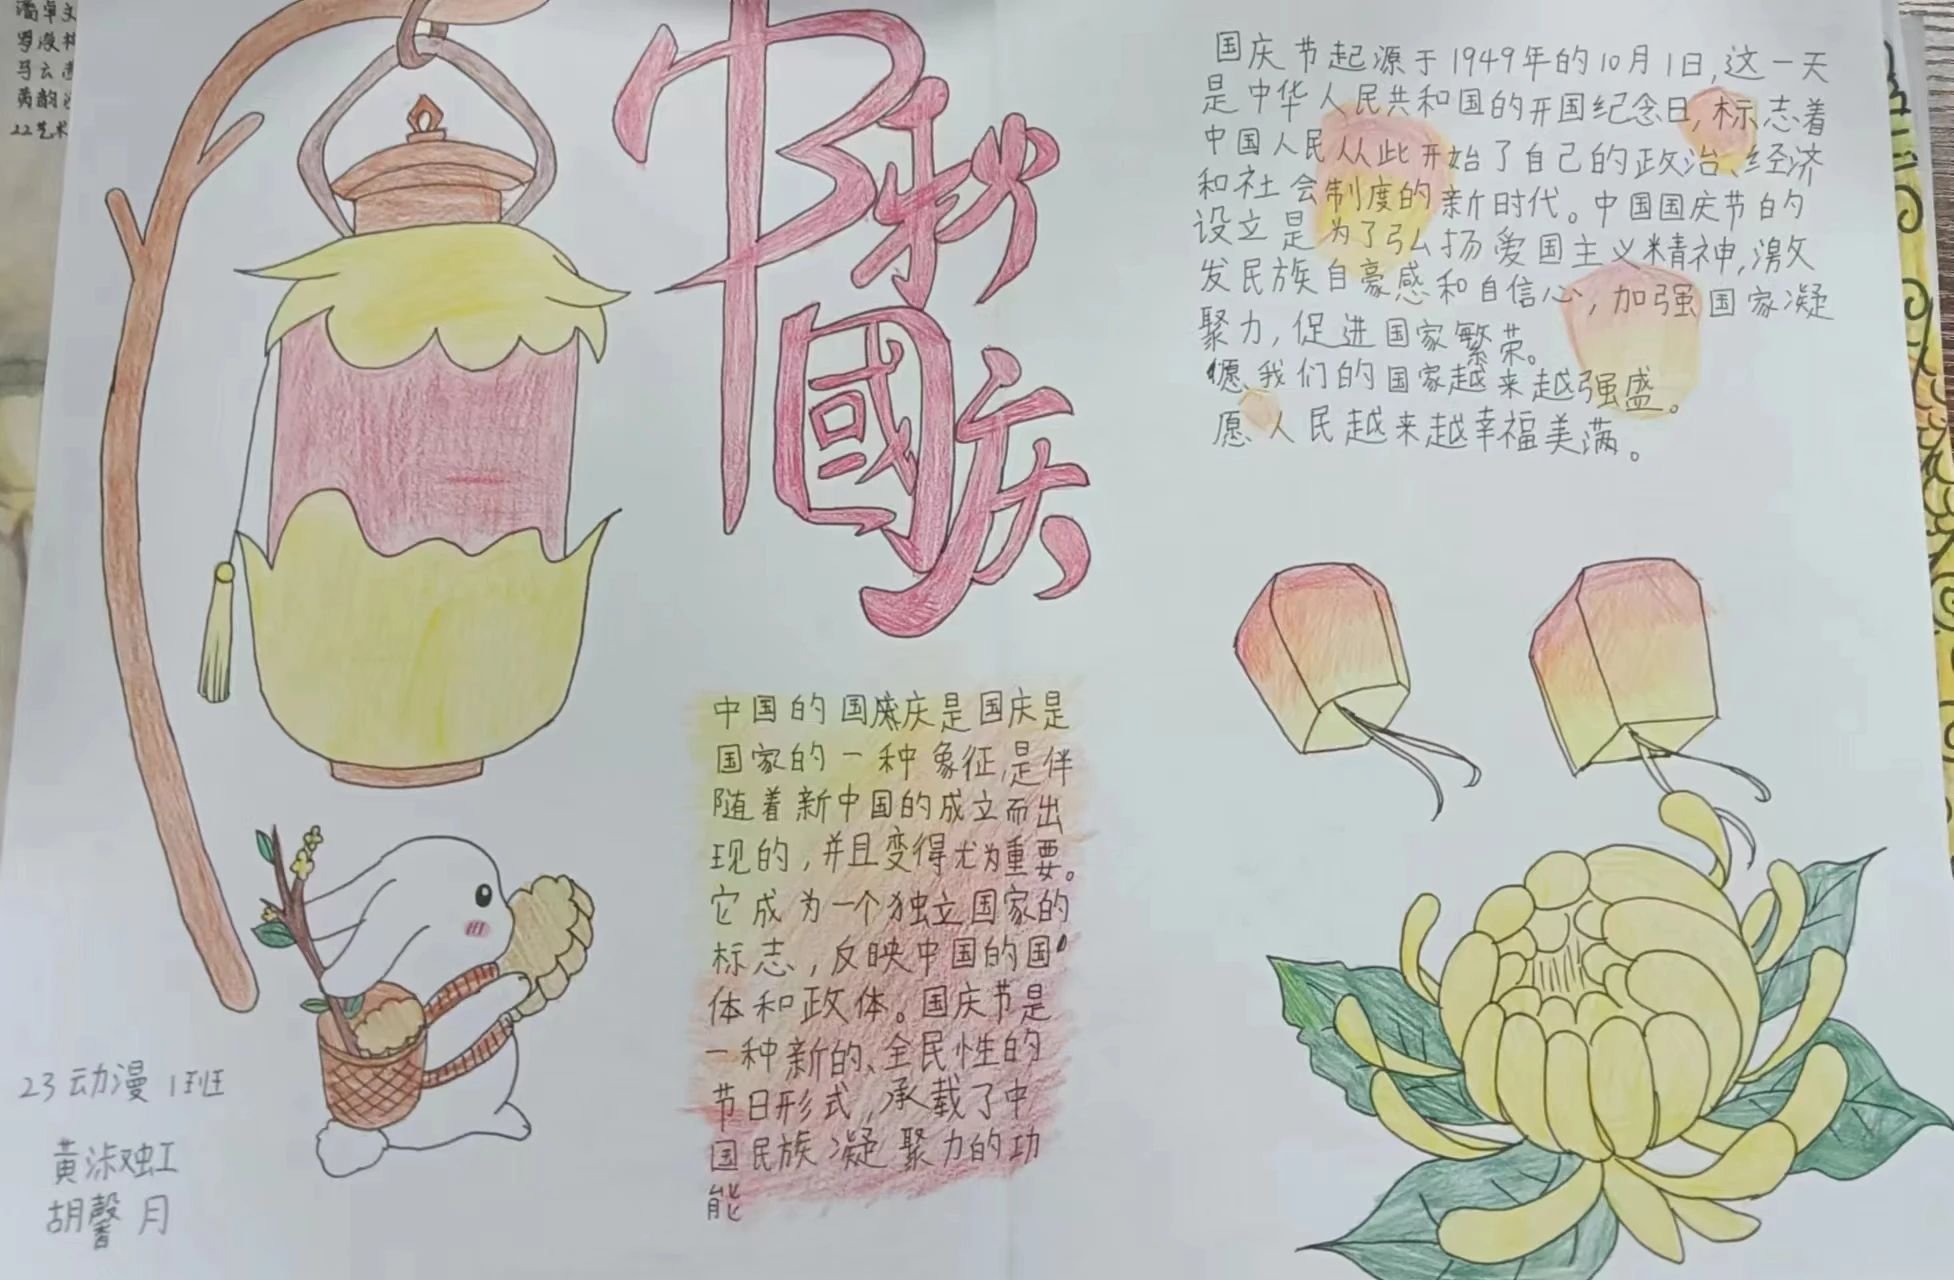 中秋
國庆
国庆节起源于1949年的10月1日,这一天
是中华人民共和国的开国纪念日,标志着
中国人民从此开始了自己的政治、经济
和社会制度的新时代。中国国庆节的
设立是为了弘扬爱国主义精神,激发
发民族自豪感和自信心,加强国家凝
聚力,促进国家繁荣。
愿我们的国家越来越强盛。
愿人民越来越幸福美满。
中国的国庆是国庆是
国家的一种象征,是伴
随着新中国的成立而出
现的,并且变得尤为重要。
它成为一个独立国家的
标志,反映中国的国
体和政体。国庆节是
一种新的、全民性的
节日形式,承载了中
国民族凝聚力的功
能
23动漫1班
黄淑虹
胡馨月
22艺术